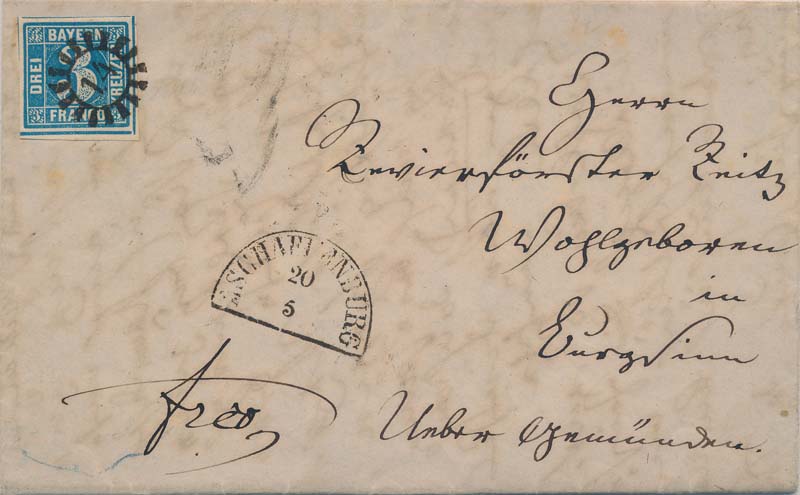 BAYERN
DREI
KREUZER
FRANCO
Herrn
Revierförster Zeitz
Wohlgeboren
in
Burgsinn
Ueber Gemünden.
ASCHAFFENBURG
20
5
frco